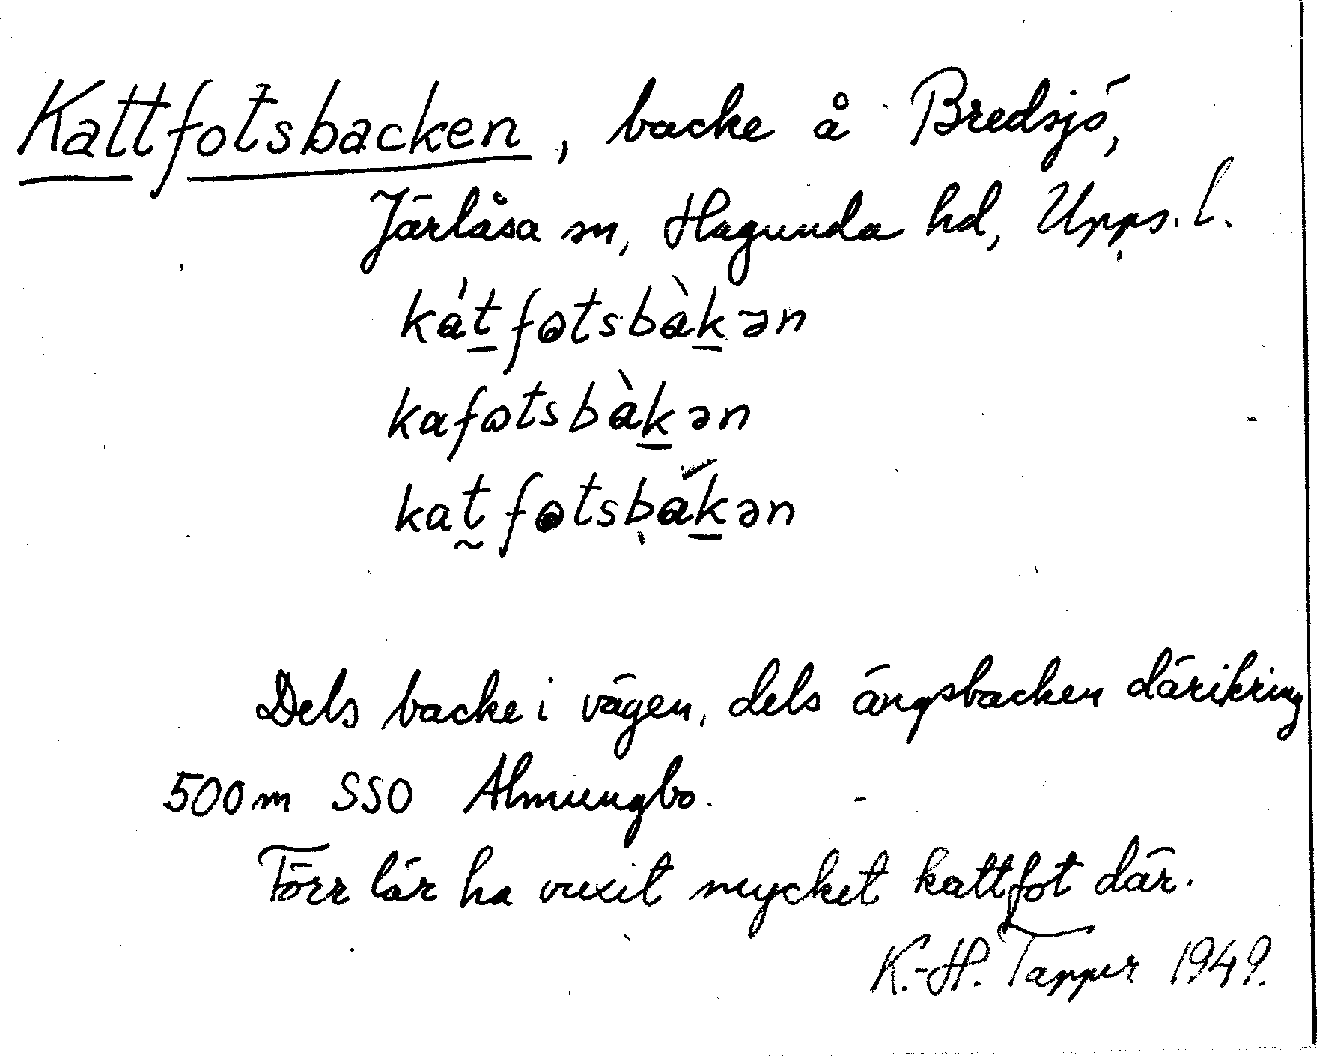 Kattfotsbacken, backe å Bredsjö,
Järlåsa sn, Hagunda hd, Upps. l.
kátfotsbàkən
kafotsbàkən
katfotsbákən
Dels backe i vägen, dels ängsbacken därikring
500 m SSO Almungbo.
Förr lär ha vuxit mycket kattfot där.
K.-H. Tapper 1949.